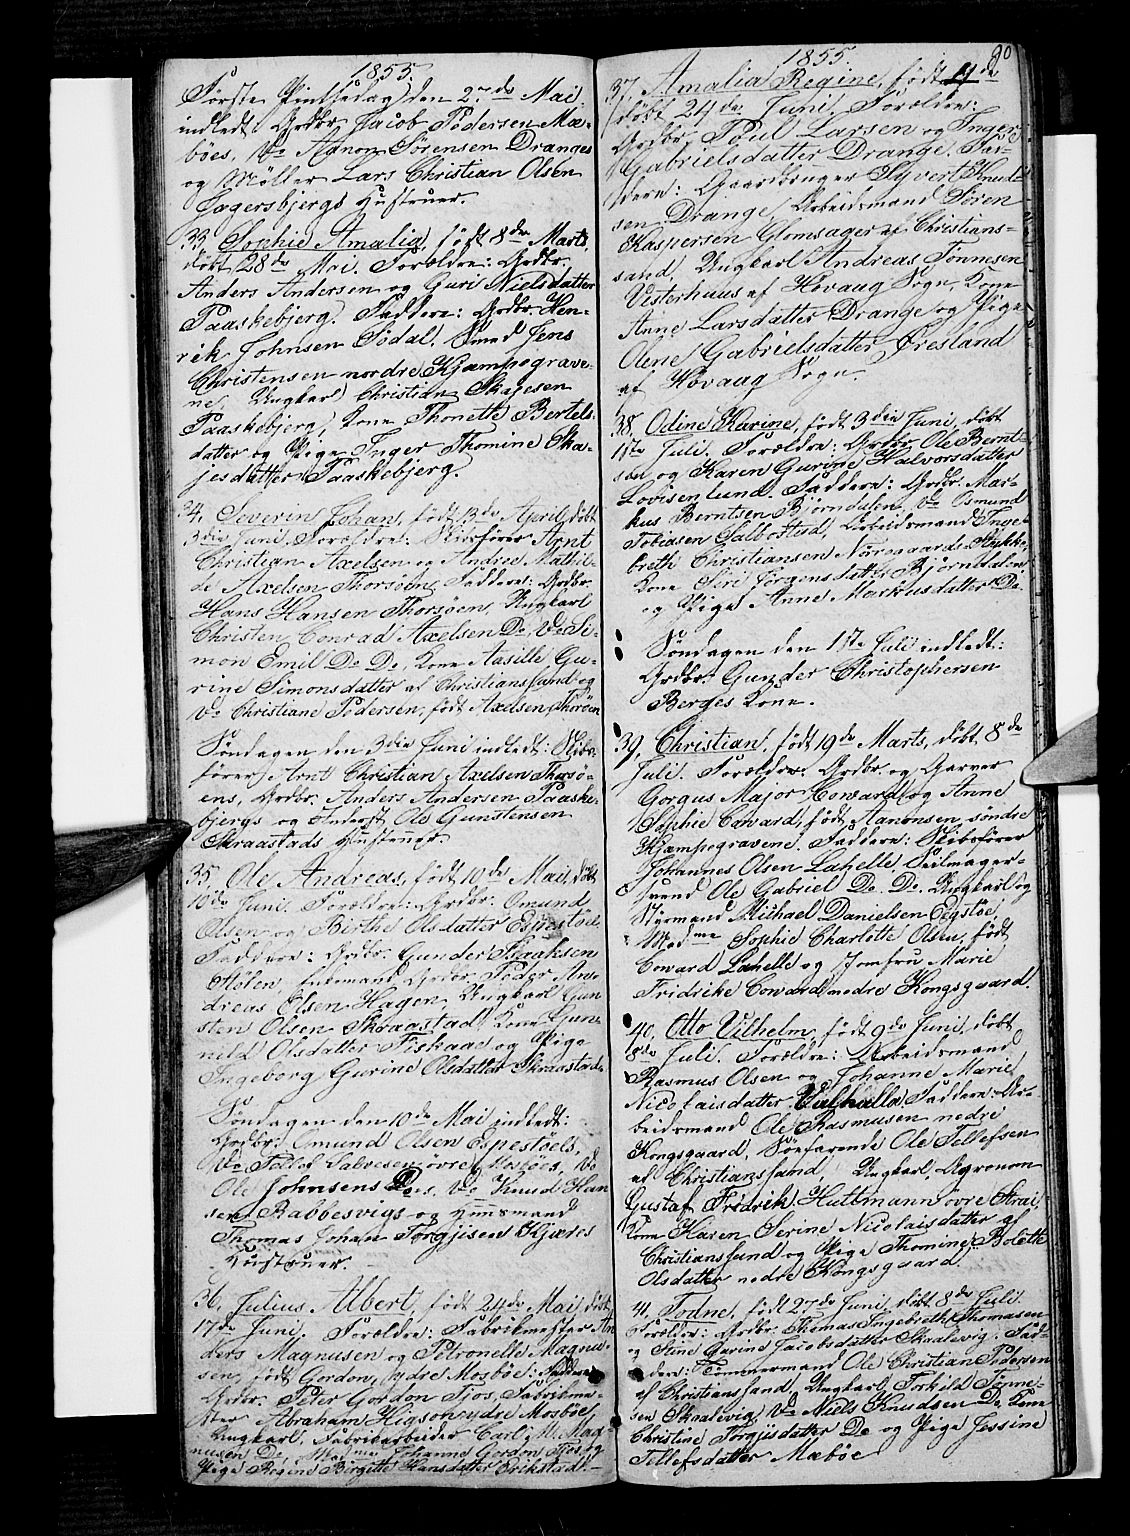 1855.
Første Pintsedag den 27de Mai
indledt Grdbr. Jacob Pedersen Mæ-
bøes, Do Aanon Sørensen Dranges
og Møller Lars Christian Olsen
Jægersbjergs Hustruer.
33, Sophie Amalia, født 8de Marts,
døbt 28de Mai. Forældre: Grdbr.
Anders Andersen og Guri Nielsdatter
Paaskebjerg. Faddere: Grdbr. Hen-
rik Johnsen Sødal, Smed Jens
Christensen nordre Kjæmpegrave-
ne, Ungkarl Christian Skajesen
Paaskebjerg, Kone Thonette Bertels-
datter og Pige Inger Thomine Ska-
jesdatter Paaskebjerg.
34, Severin Johan, født 13de April, døbt
3die Juni. Forældre: Skibsfører Arnt
Christian Axelsen og Andrea Mathil-
de Axelsen Thorsøen. Faddere: Grdbr.
Hans Hansen Thorsøen, Ungkarl
Christen Conrad Axelsen Do, Do Si-
mon Emil Do Do, Kone Aasille Gu-
rine Simonsdatter af Christianssand og
Do Christiane Pedersen, født Axelsen, Thorsøen
Søndagen den 3die Juni indledt: Skibs-
fører Arnt Christian Axelsen Thorsø-
ens, Grdbr. Anders Andersen Paaske-
bjergs og Inderst Ole Gunstensen
Skraastads Hustruer.
35, Ole Andreas, født 10de Mai, døbt
10de Juni. Forældre: Grdbr. Omund
Olsen og Birthe Olsdatter Espestøel.
Faddere: Grdbr. Gunder Isaaksen
Stølen, Enkemand Grdbr. Peder An-
dreas Olsen Hagen, Ungkarl Gun-
sten Olsen Skraastad, Kone Gun-
neld Olsdatter Fiskaae og Pige
Ingeborg Gurine Olsdatter Skraastad.
Søndagen den 10de Mai indledt:
Grdbr. Omund Olsen Espestøels,
Do Tellef Salvesen øvre Mosbøes, Do
Ole Johnsens Does, Do Knud Han-
sen Rabbesvigs og Huusmand
Thomas Johan Torgjisen Kjærets
Hustruer.
36, Julius Albert, født 24de Mai, døbt
17de Juni. Forældre: Fabrikmester An-
ders Magnusen og Petronelle Magnu-
sen, født Gordon, ydre Mosbøe. Faddere:
Grdbr. Peter Gordon Fjos, Fabrikme-
ster Abraham Higson ydre Mosbøe,
Ungkarl, Fabrikarbeider Carl M. Mag-
nusen Do, Madme Johanne Gordon Fjos og
Pige Regine Birgitte Hansdatter Erikstad.
1855.
90
37. Amalia Regine, født 11de
døbt 24de Juni. Forældre:
Grdbr. Poul Larsen og Inger
Gabrielsdatter Drange. Fad-
dere: Gaardbruger Syvert Knud-
sen Drange, Arbeidsmand Søren
Kaspersen Glomsager af Christians-
sand, Ungkarl Andreas Tønnesen
Vesterhuus af Høvaag Sogn, Kone
Anne Larsdatter Drange og Pige
Olene Gabrielsdatter Øresland
af Høvaag Sogn.
38, Odine Karine, født 3die Juni, døbt
1ste Juli. Forældre: Grdbr. Ole Bernt-
sen og Karen Gurine Halvorsdatter
Lovisenlund. Faddere: Grdbr. Mar-
kus Berntsen Bjørndalen, Do Osmund
Tobiasen Salbostad, Arbeidsmand Inge-
breth Christiansen Nørregaards Stykke,
Kone Siri Jørgensdatter Bjørndalen
og Pige Anne Markusdatter Do.
Søndagen den 1ste Juli indledt:
Grdbr. Gunder Christophersen
Berges Kone.
39, Christian, født 19de Marts, døbt 8de
Juli. Forældre: Grdbr. og Garver
Gorgus Major Coward og Anne
Sophie Coward, født Aanonsen, søndre
Kjæmpegravene. Faddere: Skibsfører
Johannes Olsen Lahelle, Seilmager-
svend Ole Gabriel Do Do, Ungkarl og
Styrmand Michael Danielsen Egstøe,
Madme Sophie Charlotte Olsen, født
Coward Lahelle og Jomfru Marie
Fridrike Coward nedre Kongsgaard.
40, Otto Vilhelm, født 9de Juni, døbt
8de Juli. Forældre: Arbeidsmand
Rasmus Olsen og Johanne Marie
Nicolaisdatter Valhalla. Faddere: Ar-
beidsmand Ole Rasmusen nedre
Kongsgaard, Søefarende Ole Tellefsen
af Christianssand, Ungkarl, Agronom
Gustaf Fridrik Huttmann øvre Strai,
Kone Karen Serine Nicolaisdatter af
Christianssand og Pige Thomine Bolette
Olsdatter nedre Kongsgaard.
41, Todne, født 27de Juni, døbt 8de Juli.
Forældre: Grdbr. Thomas Ingebreth Thomasen
og Stine Garine Jacobsdatter Skaalevig. Fad-
dere: Tømmermand Ole Christian Pedersen
af Christianssand, Ungkarl Torkild Tønne-
sen Skaalevig, Do Niels Knudsen Do, Kone
Christine Torgjisdatter Do og Pige Jessine
Tellefsdatter Mæbøe